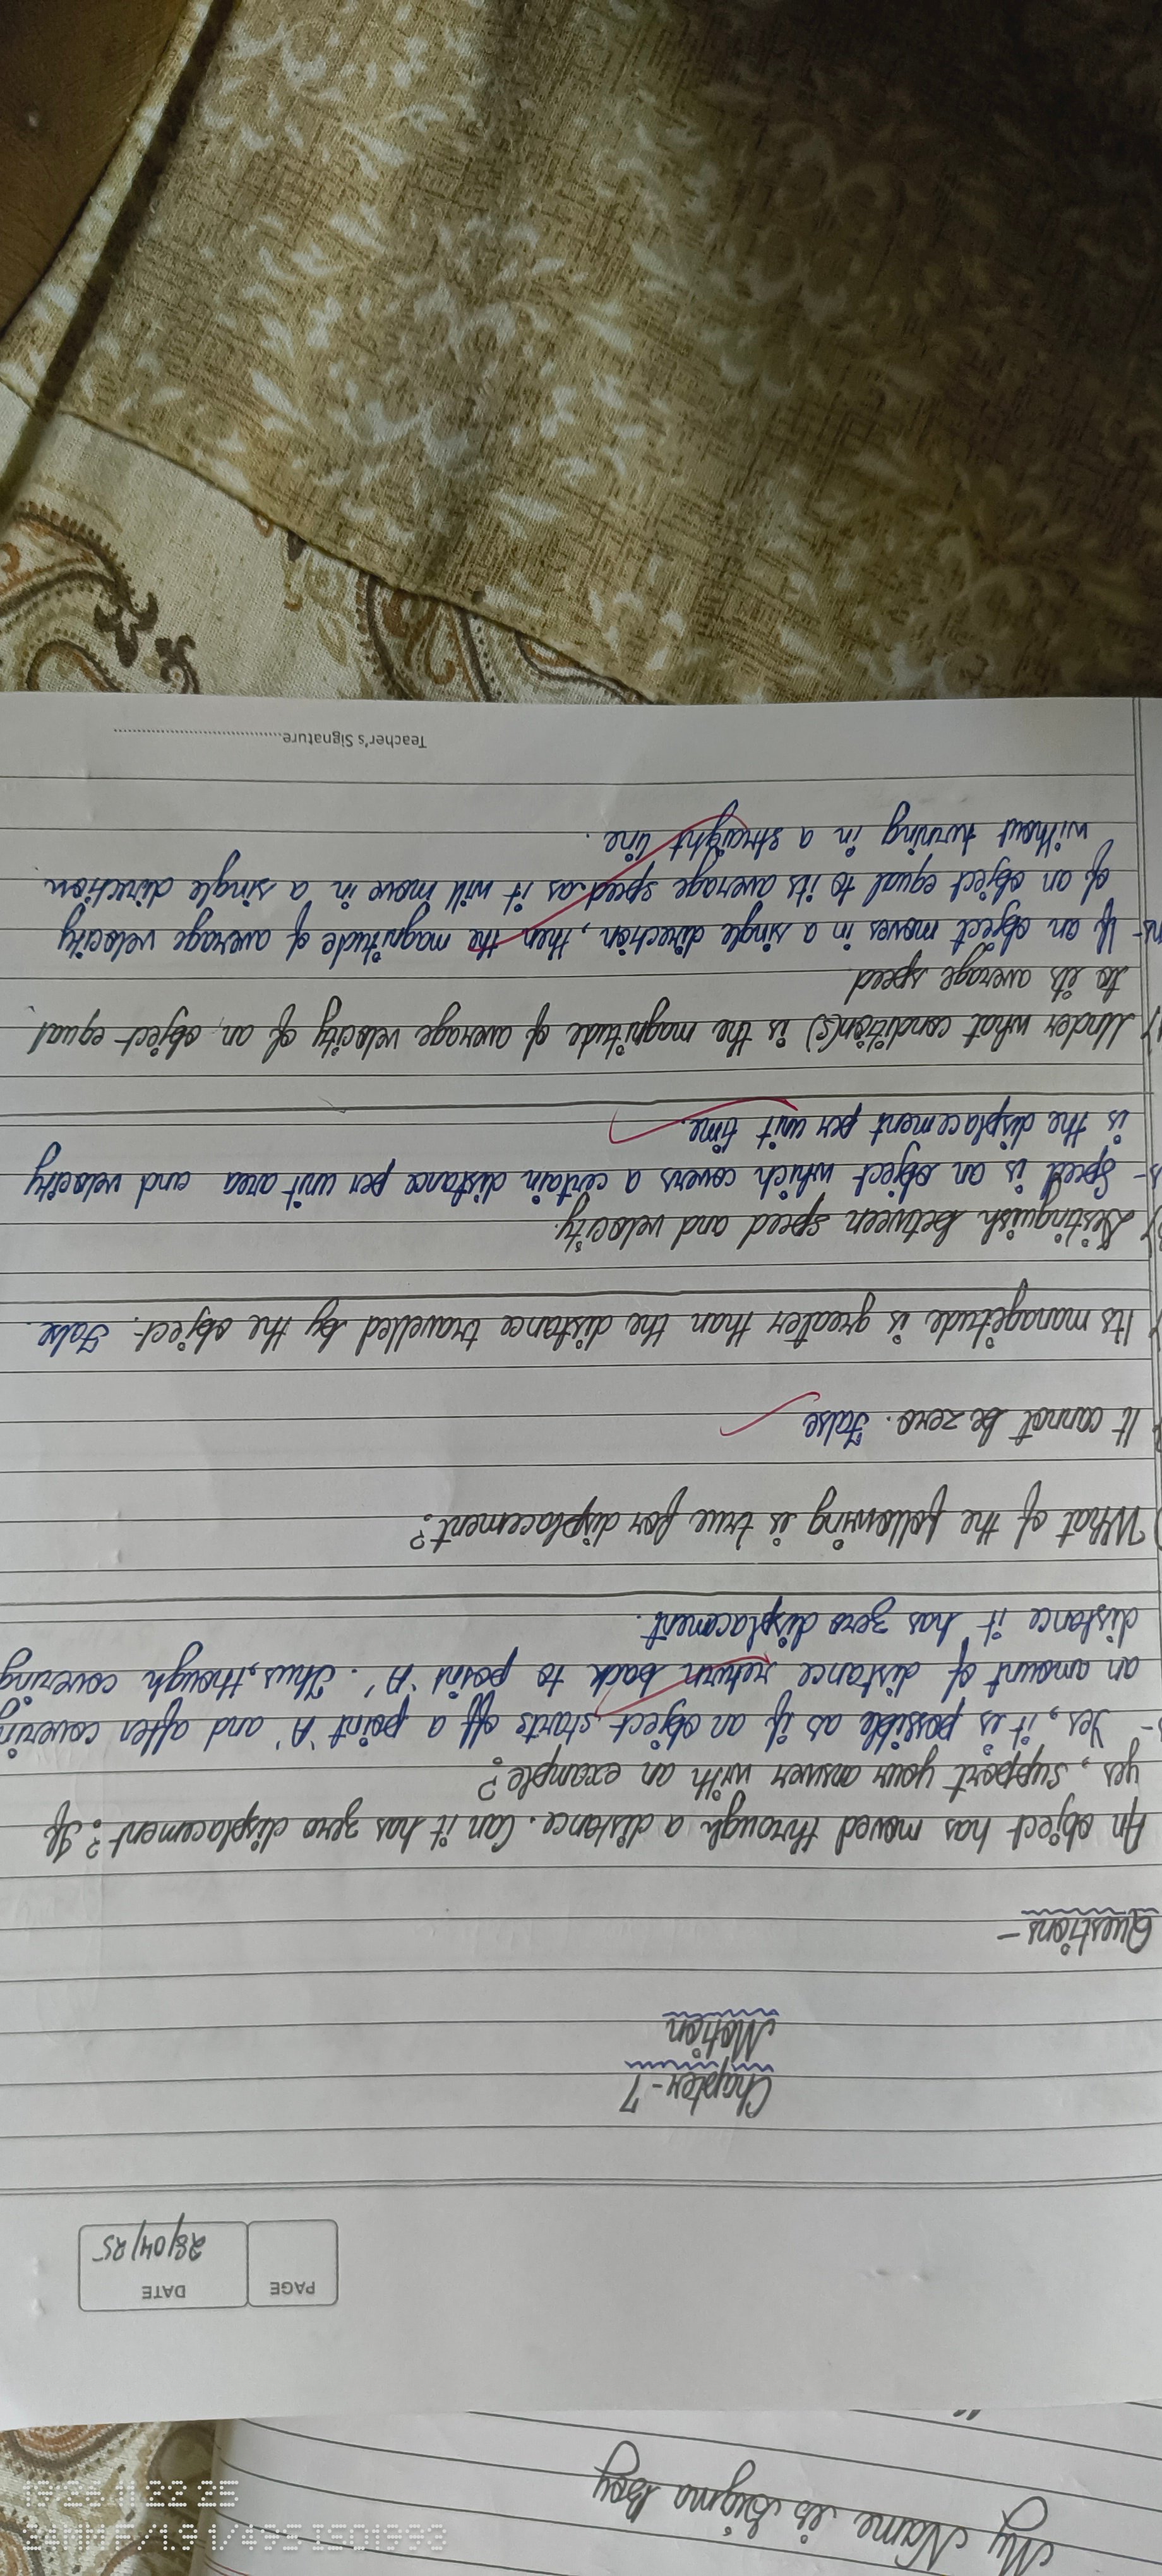 My Name is Sigma Boy
PAGE
DATE
28/04/25
Chapter-7
Motion
Questions-
An object has moved through a distance. Can it has zero displacement? If
yes, support your answer with an example?
Yes, it is possible as if an object starts off a point 'A' and after covering
an amount of distance return back to point 'A'. Thus, though covering
distance it has zero displacement.
What of the following is true for displacement?
It cannot be zero. False
Its managetude is greater than the distance travelled by the object. False.
Distinguish between speed and velocity.
Speed is an object which covers a certain distance per unit area and velocity
is the displacement per unit time.
Under what condition(s) is the magnitude of average velocity of an object equal
to its average speed
If an object moves in a single direction, then the magnitude of average velocity
of an object equal to its average speed as it will move in a single direction
without turning in a straight line.
Teacher's Signature